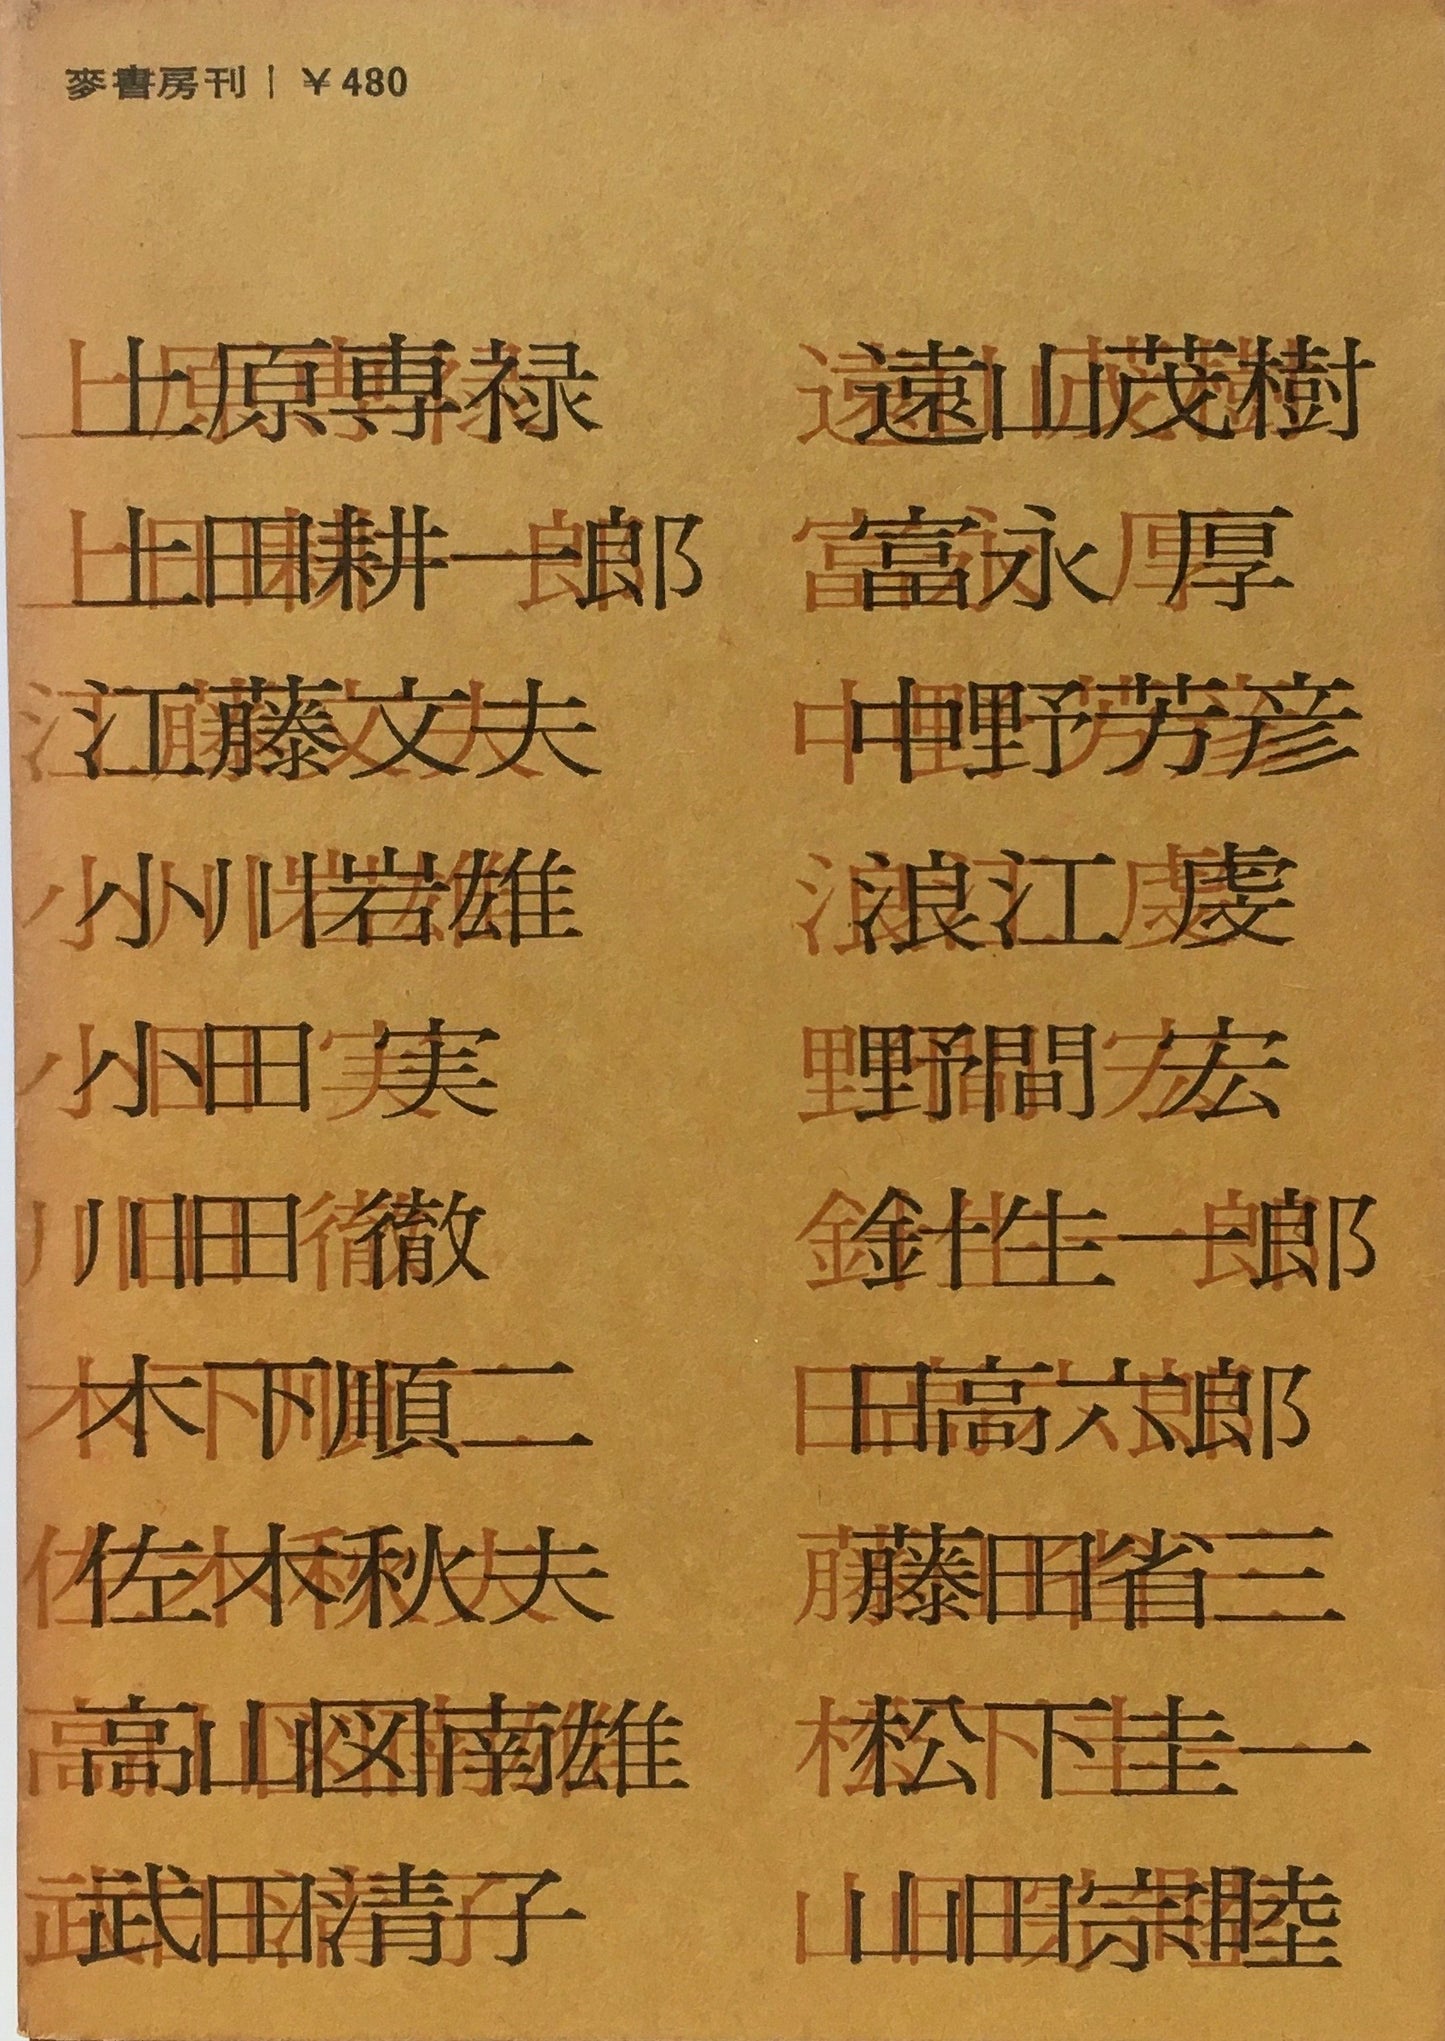 麥書房刊｜￥480
上原専禄
上田耕一郎
江藤文夫
小川岩雄
小田 実
川田 徹
木下順二
佐木秋夫
高山図南雄
武田清子
遠山茂樹
富永 厚
中野芳彦
浪江 虔
野間 宏
針生一郎
日高六郎
藤田省三
松下圭一
山田宗睦